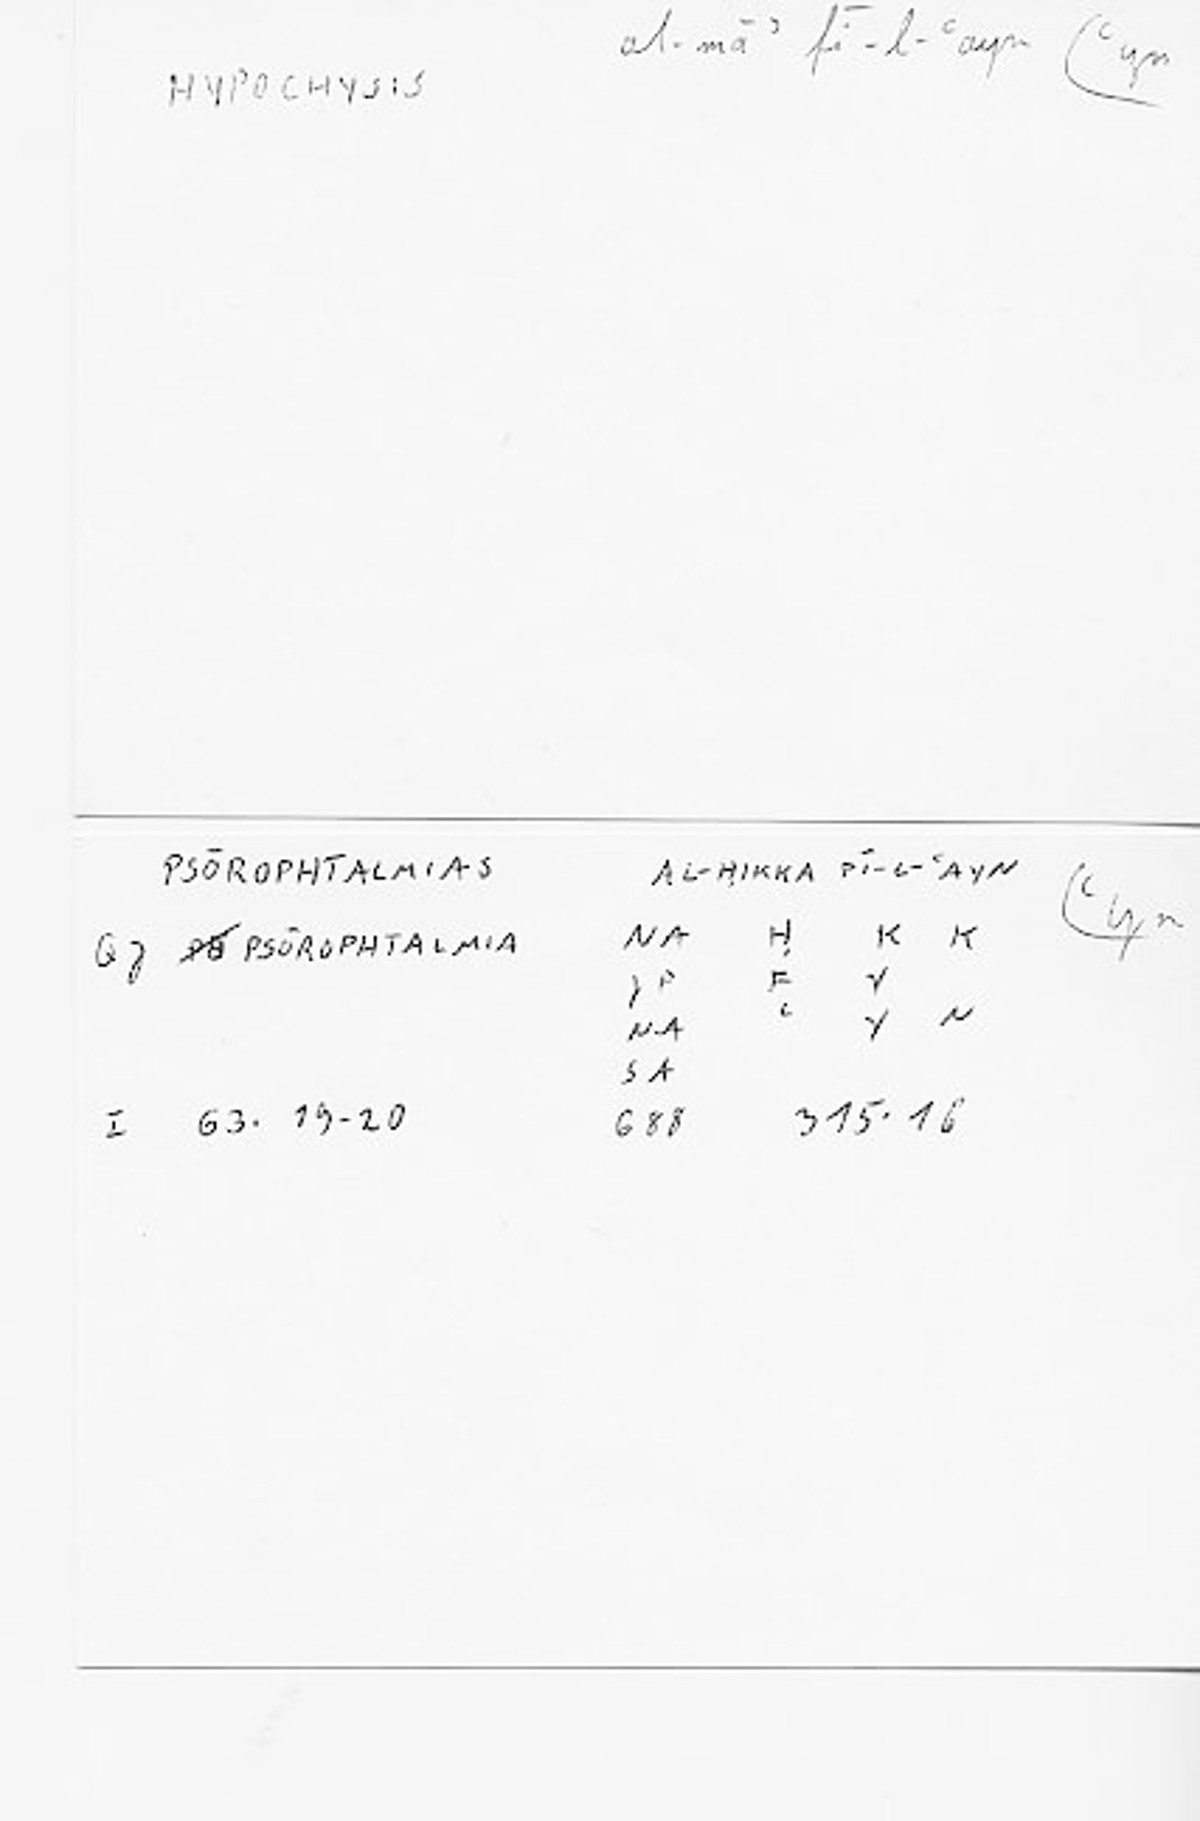 HYPOCHYSIS al-māʾ fī-l-ʿayn (ʿyn
PSŌROPHTALMIAS AL-ḤIKKA FĪ-L-ʿAYN (ʿyn
Gj PSŌROPHTALMIA NA Ḥ K K
JP F Y
NA ʿ Y N
SA
I 63. 19-20 688 315.16